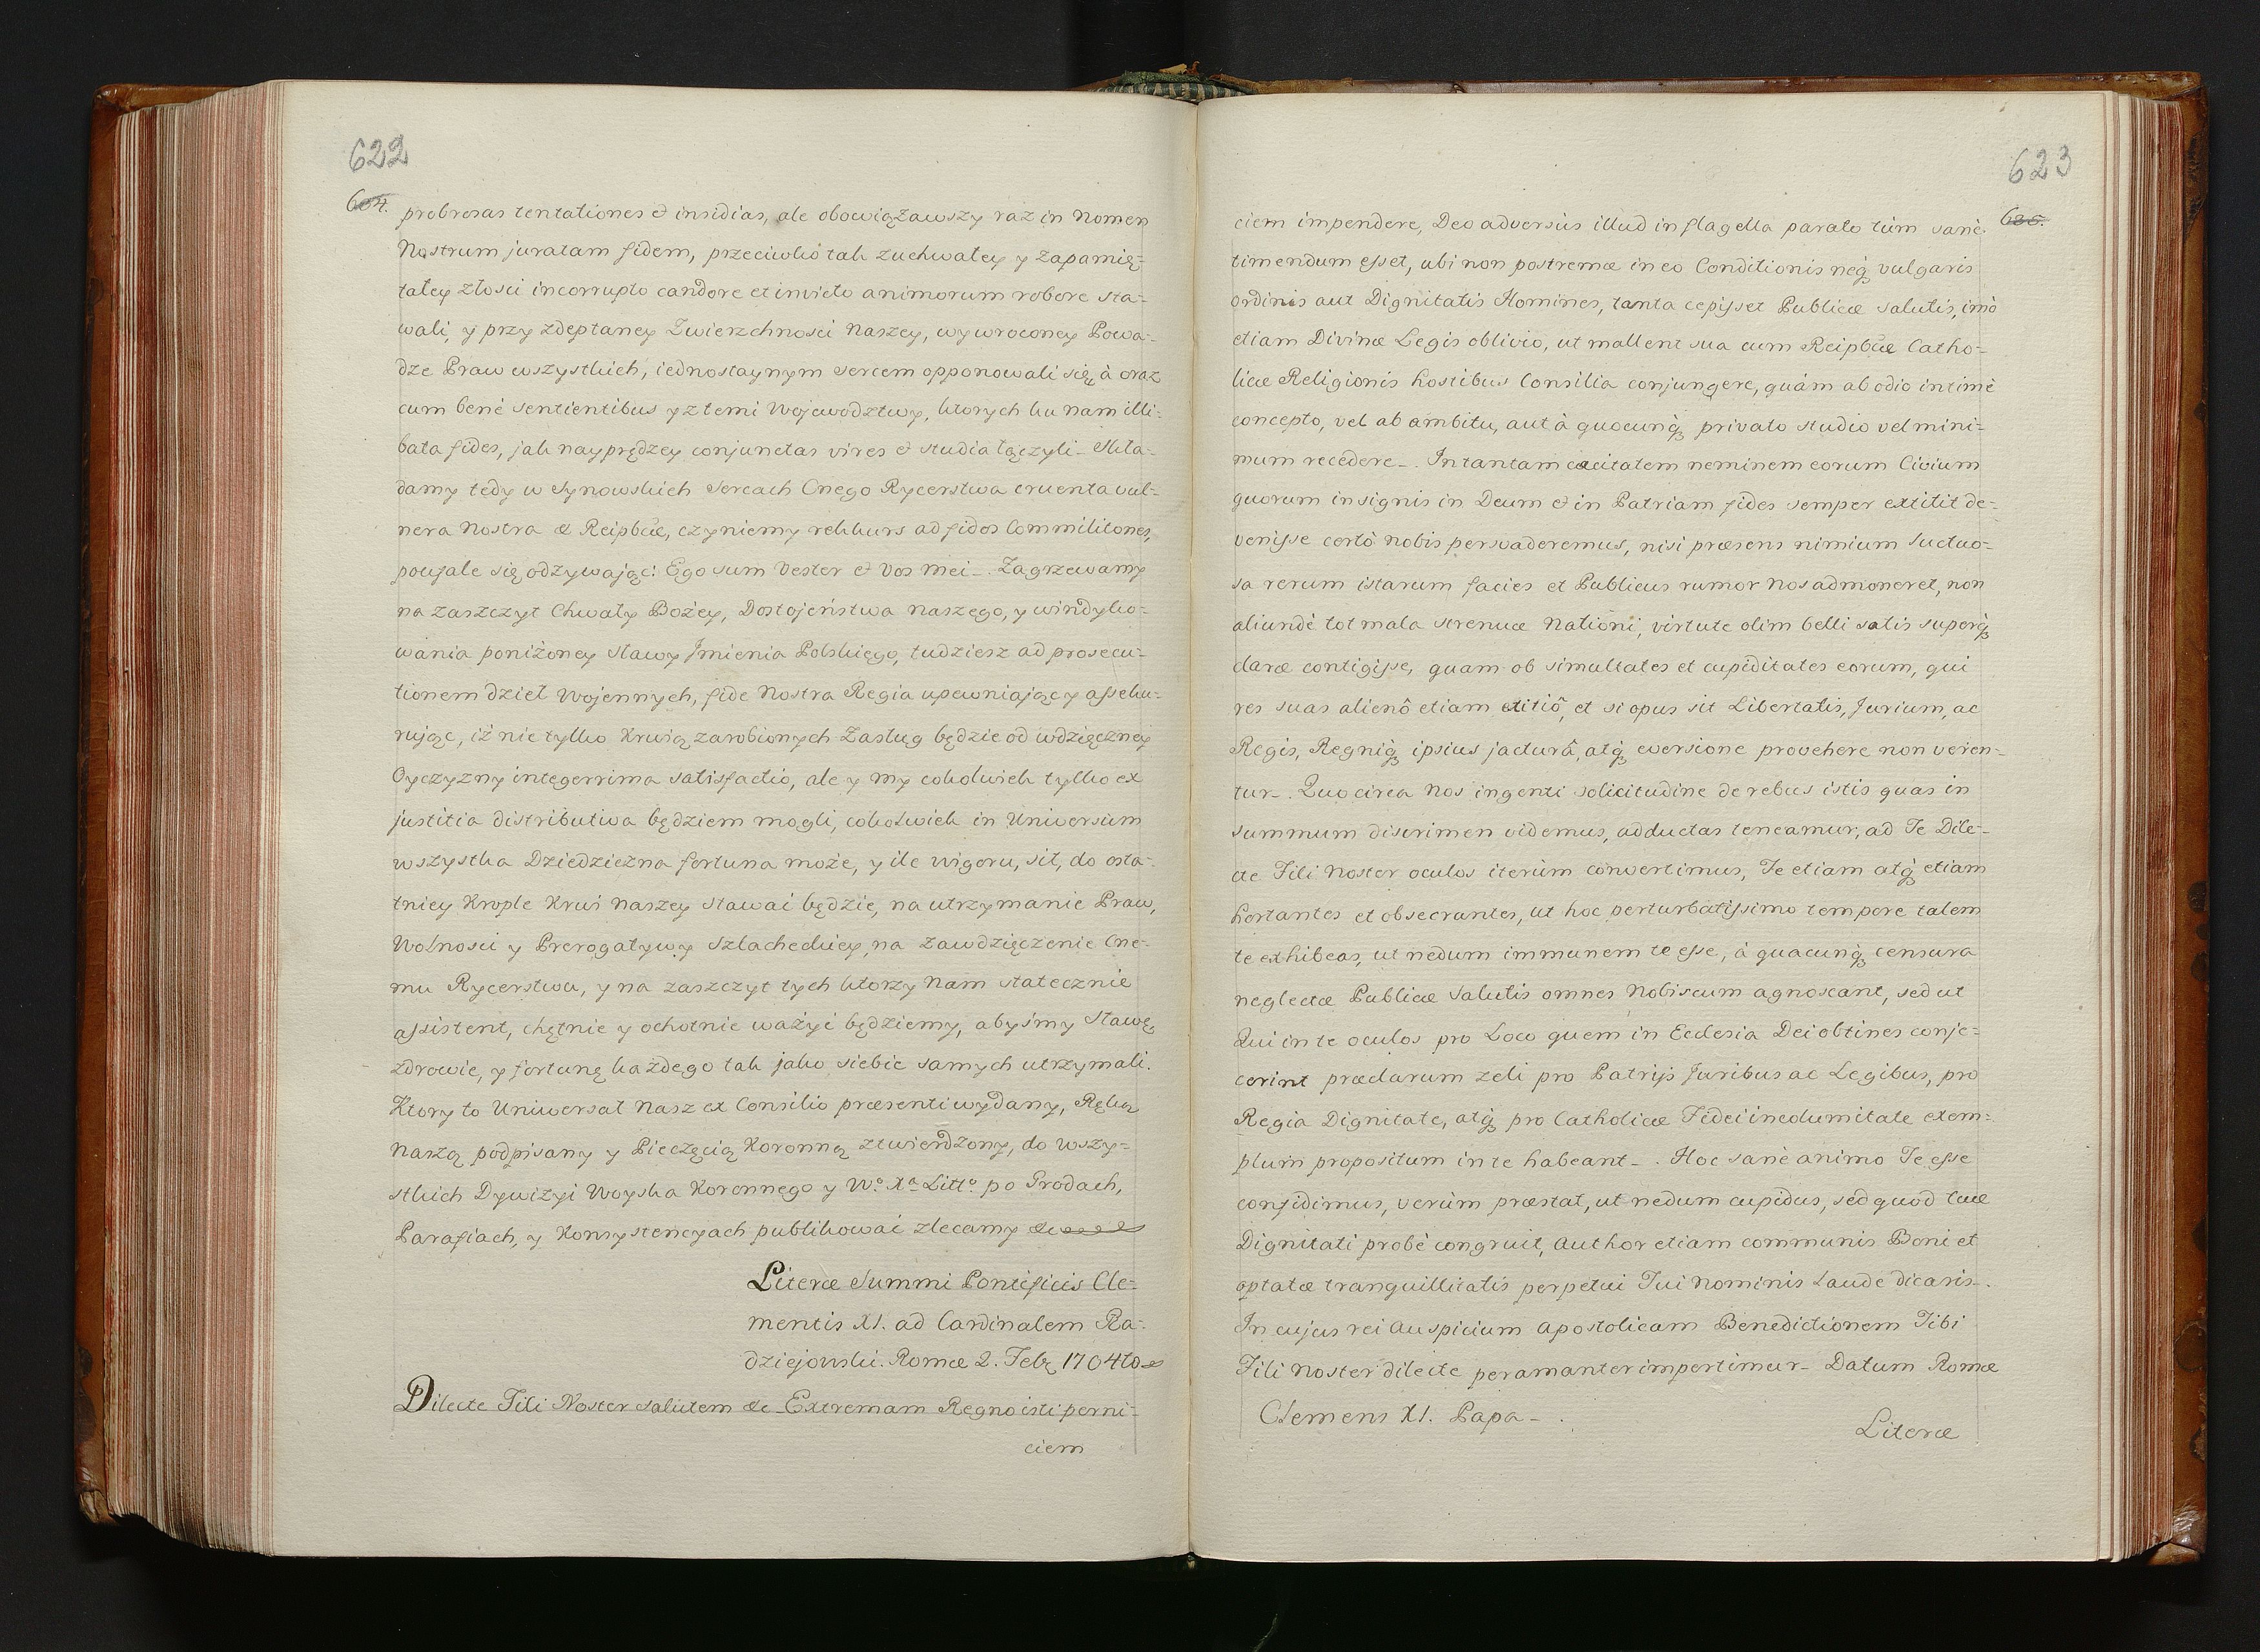 622
604.
probrosas tentationes & insidias, ale obowiązawszy raz in Nomen
Nostrum juratam fidem, przeciwko tak zuchwałey y zapamię=
tałey złosci incorrupto candore et invicto animorum robore sta=
wali, y przy zdeptaney Zwierzchnosci Naszey, wywroconey Powa=
dze Praw wszystkich, iednostaynym sercem opponowali się, à oraz
cum benè sentientibus y z temi Wojewodztwy, ktorych ku nam illi=
bata fides, jak nayprędzey conjunctas vires & studia łączyli_ Skła=
damy tedy w Synowskich Sercach Onego Rycerstwa cruenta vul=
nera Nostra & Reipbcæ, czyniemy rekkurs ad fidos Commilitones,
poufale się odzywając: Ego sum Vester & Vos mei_. Zagrzewamy
na zaszczyt Chwały Bożey, Dostojeństwa naszego, y windyko=
wania poniżoney Sławy Jmienia Polskiego, tudziesz ad prosecu=
tionem dzieł Wojennych, fide Nostra Regia upewniając y asseku=
rując, iż nie tylko Krwią zarobionych Zasług będzie od wdzięczney
Oyczyzny integerrima satisfactio, ale y my cokolwiek tylko ex
justitia distributiva będziem mogli, cokolwiek in Universum
wszystka Dziedziczna fortuna może, y ile wigoru, sił, do osta=
tniey Krople Krwi naszey stawać będzie, na utrzymanie Praw,
Wolnosci y Prerogatywy Szlacheckiey, na zawdzięczenie One=
mu Rycerstwu, y na zaszczyt tych ktorzy Nam statecznie
assistent, chętnie y ochotnie ważyć będziemy, abyśmy Sławę
zdrowie, y fortunę każdego tak jako siebie samych utrzymali.
Ktory to Uniwersał Nasz ex Consilio præsenti wydany, Ręką
Naszą podpisany y Pieczęcią Koronną ztwierdzony, do wszy=
stkich Dywizyi Woyska Koronnego y W.o X.a Litt.o po Grodach,
Parafiach, y Konsystencyach publikować zlecamy &c
Literæ Summi Pontificis Cle=
mentis XI. ad Cardinalem Ra=
dziejowski. Romæ 2. Febr 1704to
Dilecte Fili Noster salutem &c Extremam Regno isti perni=
ciem
623
685.
ciem impendere, Deo adversùs illud in flagella parato tùm sanè
timendum esset, ubi non postremæ in eo Conditionis neq3 vulgaris
ordinis aut Dignitatis Homines, tanta cepisset Publicæ salutis, imò
etiam Divinæ Legis oblivio, ut mallent sua cum Reipbcæ Catho=
licæ Religionis hostibus Consilia conjungere, quám ab odio intimè
concepto, vel ab ambitu, aut à quocunq3 privato studio vel mini=
mum recedere_. In tantam cæcitatem neminem eorum Civium
quorum insignis in Deum & in Patriam fides semper extitit de=
venisse certò nobis persvaderemus, nisi præsens nimium luctuo=
sa rerum istarum facies et Publicus rumor Nos admoneret, non
aliundè tot mala strenuæ Nationi, virtute olim belli satis superq3
claræ contigisse, quam ob simultates et cupiditates eorum, qui
res suas alienô etiam exitiô, et si opus sit Libertatis, Jurium, ac
Regis, Regniq3 ipsius jacturâ, atq3 eversione provehere non veren=
tur_. Quocirca Nos ingenti solicitudine de rebus istis quas in
summum discrimen videmus, adductas teneamur, ad Te Dile=
cte Fili Noster oculos iterùm convertimus, Te etiam atq3 etiam
hortantes et obsecrantes, ut hoc perturbatissimo tempore talem
te exhibeas, ut nedum immunem te esse, à quacunq3 censura
neglectæ Publicæ Salutis omnes Nobiscum agnoscant, sed ut
Qui in te oculos pro Loco quem in Ecclesia Dei obtines conje=
cerint præclarum zeli pro Patrijs Juribus ac Legibus, pro
Regia Dignitate, atq3 pro Catholicæ Fidei incolumitate exem=
plum propositum in te habeant_. Hoc sanè animo Te esse
confidimus, verùm præstat, ut nedum cupidus, sed quod tuæ
Dignitati probè congruit, Author etiam communis Boni et
optatæ tranquillitatis perpetui Tui Nominis Laude dicaris_.
In cujus rei Auspicium Apostolicam Benedictionem Tibi
Fili Noster dilecte peramanter impertimur_ Datum Romæ
Clemens XI. Papa_.
Literæ